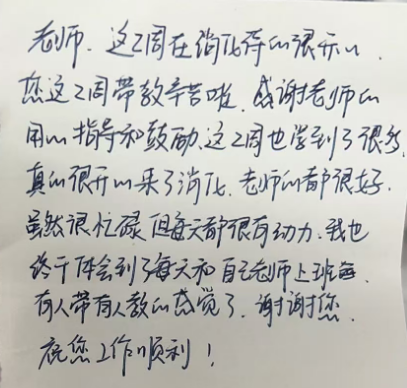 老师、这2周在消化待的很开心、
您这2周带教辛苦啦、感谢老师的
用心指导和鼓励、这2周也学到了很多、
真的很开心来了消化、老师们都很好、
虽然很忙碌但每天都很有动力、我也
终于体会到了每天和自己老师上班
有人带有人教的感觉了、谢谢您、
祝您工作顺利!